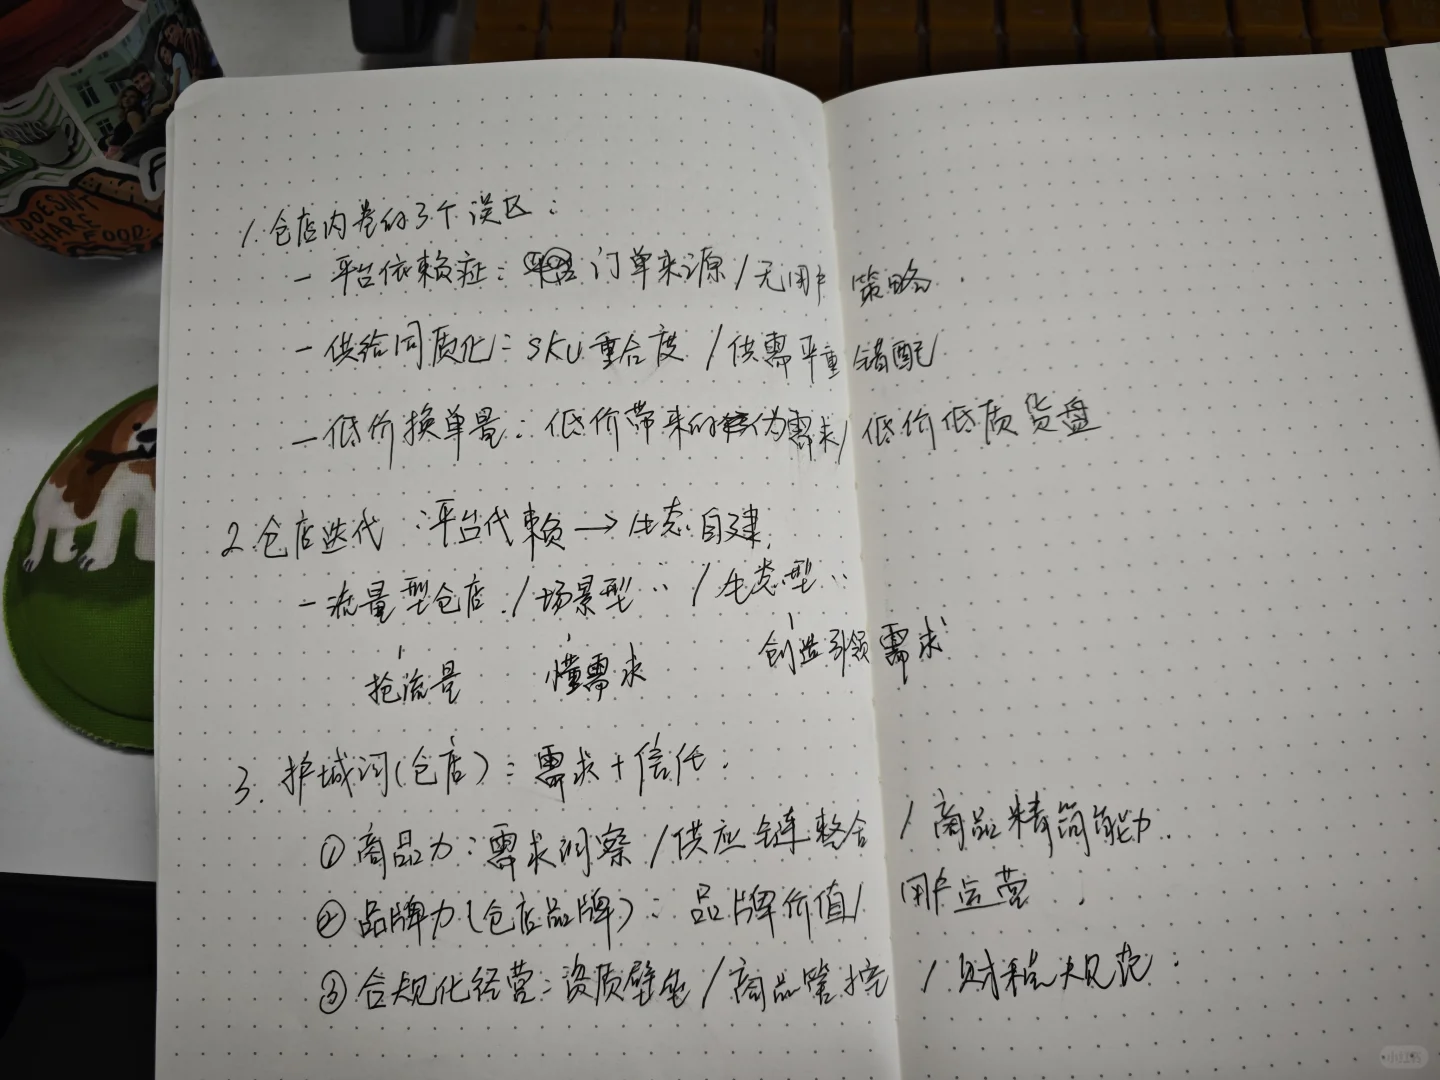 DOESN'T
SHARE
FOOD
1. 仓店内卷的3个误区:
- 平台依赖症: 订单来源 / 无用户策略
- 供给同质化: SKU重合度 / 供需严重错配
- 低价换单量: 低价带来的伪需求 / 低价低质货盘
2. 仓店迭代: 平台依赖 → 生态自建
- 流量型仓店 / 场景型 〃 / 生态型 〃
抢流量 懂需求 创造引领需求
3. 护城河(仓店): 需求 + 信任.
① 商品力: 需求洞察 / 供应链整合 / 商品精简能力.
② 品牌力(仓店品牌): 品牌价值 / 用户运营
③ 合规化经营: 资质壁垒 / 商品管控 / 财税规范.
小红书